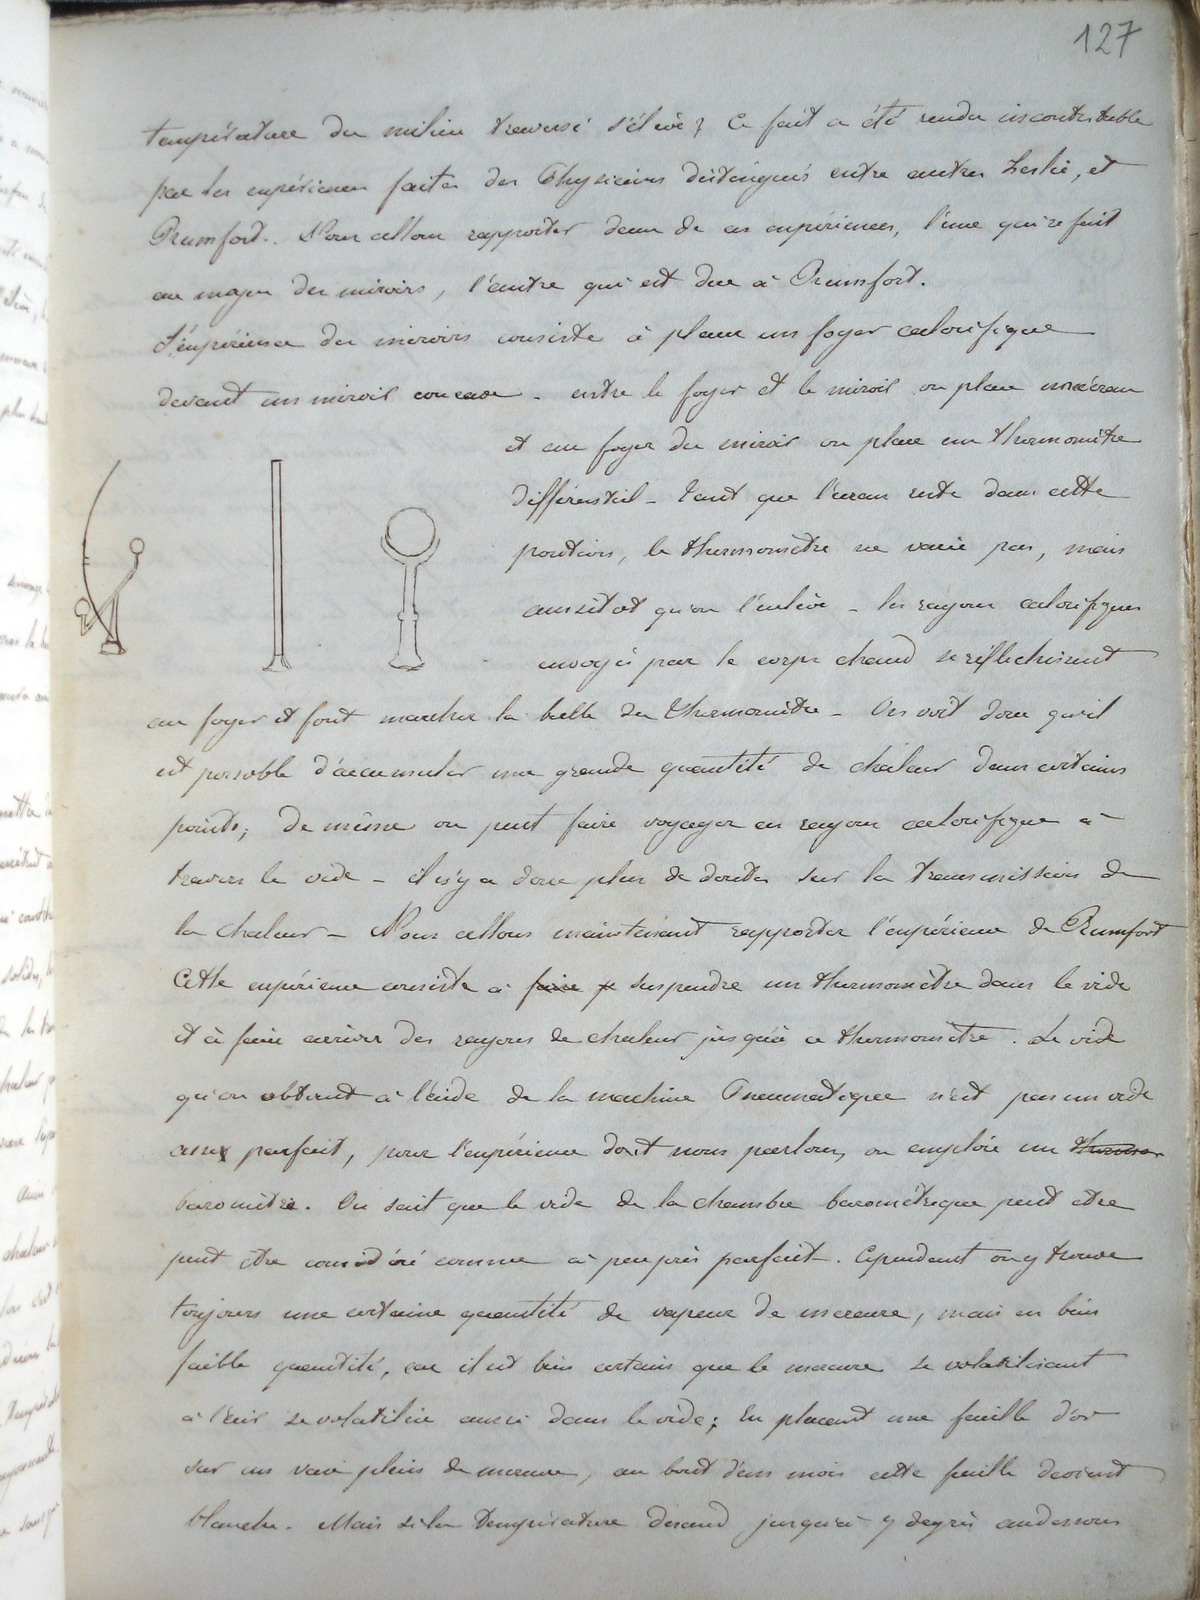 127
température du milieu traversé s'élève ? Ce fait a été rendu incontestable
par les expériences faites des Physiciens distingués entre autres Leslie, et
Rumfort. Nous allons rapporter deux de ces expériences, l'une qui se fait
au moyen des miroirs, l'autre qui est due à Rumfort.
L'expérience des miroirs consiste à placer un foyer calorifique
devant un miroir concave - entre le foyer et le miroir on place un écran
et au foyer du miroir on place un thermomètre
différentiel - Tant que l'écran reste dans cette
position, le thermomètre ne varie pas, mais
aussitôt qu'on l'enlève - les rayons calorifiques
envoyés par le corps chaud se réfléchissent
au foyer et font marcher la bulle du thermomètre - On voit donc qu'il
est possible d'accumuler une grande quantité de chaleur dans certains
points; de même on peut faire voyager un rayon calorifique à
travers le vide - il n'y a donc plus de doutes sur la transmission de
la chaleur - Nous allons maintenant rapporter l'expérience de Rumfort
Cette expérience consiste à faire suspendre un thermomètre dans le vide
et à faire arriver des rayons de chaleur jusqu'à ce thermomètre. Le vide
qu'on obtient à l'aide de la machine Pneumatique n'est pas un vide
assez parfait, pour l'expérience dont nous parlons, on emploie un thermo
baromètre. On sait que le vide de la chambre barométrique peut etre
peut être considéré comme à peu près parfait. Cependant on y trouve
toujours une certaine quantité de vapeur de mercure, mais en bien
faible quantité, car il est bien certain que le mercure se volatilisant
à l'air se volatilise aussi dans le vide; En placant une feuille d'or
sur un vase plein de mercure, au bout d'un mois cette feuille devient
blanche. Mais si la température descend jusqu'à 7 degrés audessous